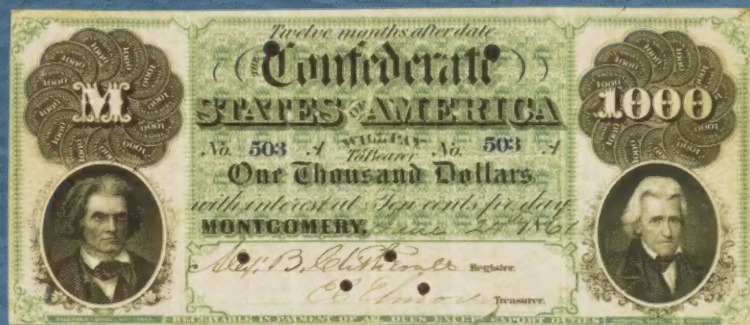 Twelve months after date
THE Confederate
STATES OF AMERICA
WILL PAY
No. 503 A To Bearer No. 503 A
One Thousand Dollars
with interest at Ten cents per day
MONTGOMERY, June 1861
Alex. B. Clitherall Register.
E C Elmore Treasurer.
RECEIVABLE IN PAYMENT OF ALL DUES EXCEPT EXPORT DUTIES
M
1000